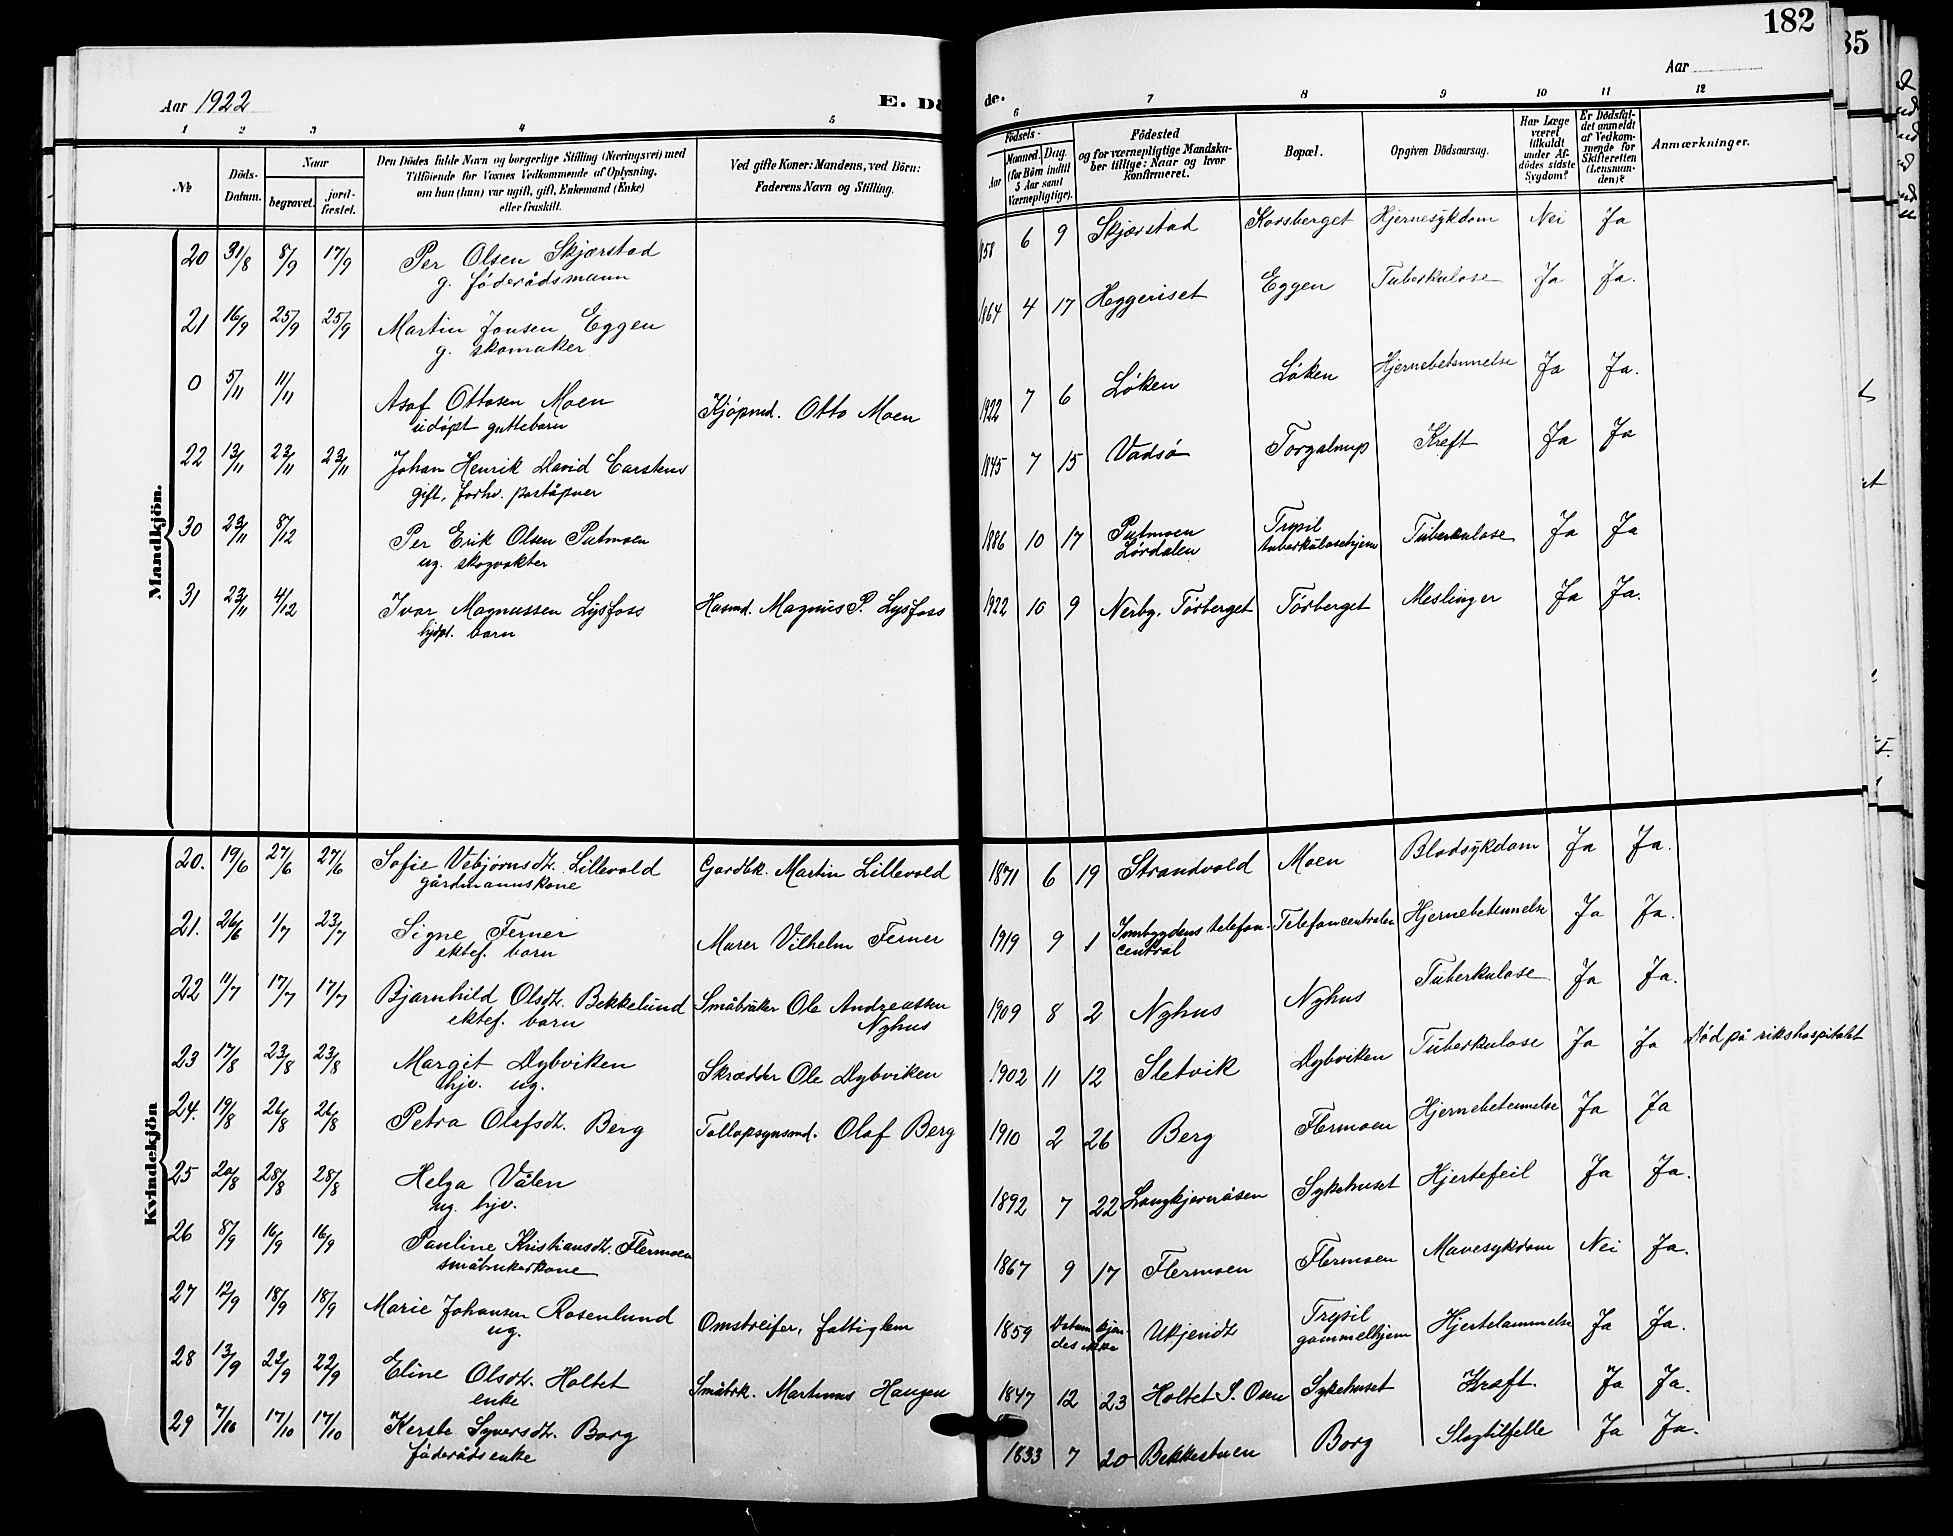 182
35
Aar 1922
E. Dö
de.
Aar
1 2 3 4 5 6 7 8 9 10 11 12
№
Döds-Datum.
Naar
begravet.
jord-fæstet.
Den Dödes fulde Navn og borgerlige Stilling (Næringsvei) med
Tilföiende for Voxnes Vedkommende af Oplysning,
om hun (han) var ugift, gift, Enkemand (Enke)
eller fraskilt.
Ved gifte Koner: Mandens, ved Börn:
Faderens Navn og Stilling.
Födsels-
Aar
Maaned. Dag.
(for Börn indtil
5 Aar samt
Værnepligtige).
Födested
og for værnepligtige Mandska-
ber tillige: Naar og hvor
konfirmeret.
Bopæl.
Opgiven Dödsaarsag.
Har Læge
været
tilkaldt
under Af-
dödes sidste
Sygdom?
Er Dödsfal-
det anmeldt
af Vedkom-
mende for
Skifteretten
(Lensman-
den)?
Anmærkninger.
Mandkjön.
20 31/8 8/9 17/9 Per Olsen Skjærstad 1858 6 9 Skjærstad Korsberget Hjernesykdom Nei Ja
g. föderådsmann
21 16/9 25/9 25/9 Martin Jonsen Eggen 1864 4 17 Heggeriset Eggen Tuberkulose Ja Ja.
g. skomaker
0 5/11 11/11 Asaf Ottosen Moen Kjøpmd. Otto Moen 1922 7 6 Løken Løken Hjernebetennelse Ja Ja.
udöpt guttebarn
22 13/11 23/11 23/11 Johan Henrik David Carstens 1845 7 15 Vadsø Torgalsrup Kreft Ja Ja
gift, forhv. poståpner
30 23/11 8/12 Per Erik Olsen Putmoen 1886 10 17 Putmoen Lørdalen Trysil tuberkulosehjem Tuberkulose Ja Ja
ug. skogvokter
31 23/11 4/12 Ivar Magnussen Lysfoss Husmd. Magnus P. Lysfoss 1922 10 9 Nerbg. Tørberget Tørberget Meslinger Ja Ja.
hjdpt. barn
Kvindekjön
20. 19/6 27/6 27/6 Sofie Vebjørnsdt. Lillevold Gardbk. Martin Lillevold 1871 6 19 Strandvold Moen Blodsykdom Ja Ja.
gårdmannskone
21. 26/6 1/7 23/7 Signe Ferner Murer Vilhelm Ferner 1919 9 1 Innbygdens telefon-central Telefoncentralen Hjernebetennelse Ja Ja.
ektef. barn
22 11/7 17/7 17/7 Bjarnhild Olsdt. Bekkelund Småbruker Ole Andreassen Nyhus 1909 8 2 Nyhus Nyhus Tuberkulose Ja Ja.
ektef. barn
23 17/8 23/8 23/8 Margit Dybviken Skrædder Ole Dybviken 1902 11 12 Sletvik Dybviken Tuberkulose Ja Ja Död på rikshospitalet
hjv. ug.
24. 19/8 26/8 26/8 Petra Olafsdt. Berg Tollopsynsmd. Olaf Berg 1910 2 26 Berg Flermoen Hjernebetennelse Ja Ja
25 20/8 28/8 28/8 Helga Vålen 1892 7 22 Langkjernåsen Sykehuset Hjertefeil Ja Ja.
ug. hjv.
26 8/9 16/9 16/9 Pauline Kristiansdt. Flermoen 1867 9 17 Flermoen Flermoen Mavesykdom Nei Ja.
småbrukerkone
27 12/9 18/9 18/9 Marie Johansen Rosenlund Omstreifer, fattiglem 1859 Datum kjendes ikke Ukjendt Trysil gammelhjem Hjertelammelse Ja Ja.
ug.
28 13/9 22/9 22/9 Eline Olsdt. Holtet Småbrk. Martinus Haugen 1847 12 23 Holtet S. Osen Sykehuset Kræft. Ja Ja.
enke
29 7/10 17/10 17/10 Kerste Syversdt. Borg 1833 7 20 Bekkestuen Borg Slagtilfelle Ja Ja.
föderådsenke